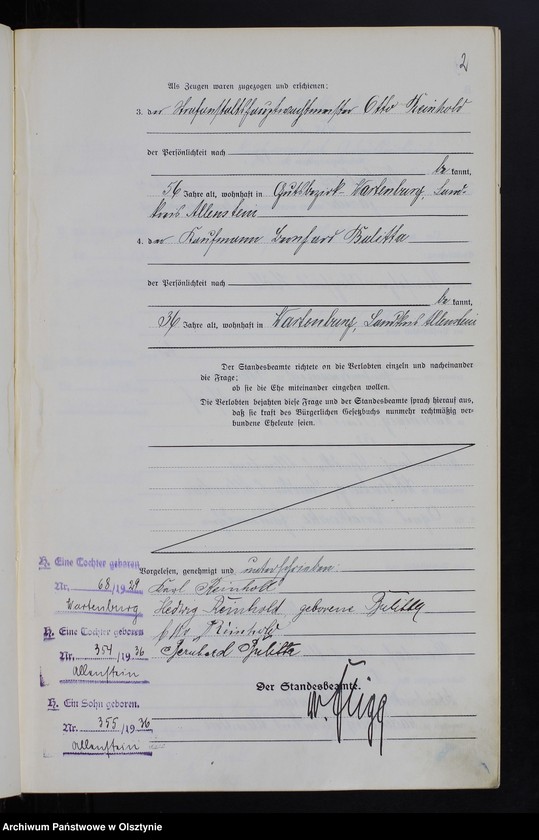 2
Als Zeugen waren zugezogen und erschienen:
3. der Strafanstaltshauptwachtmeister Otto Reinhold
der Persönlichkeit nach
be kannt,
56 Jahre alt, wohnhaft in Gutsbezirk Wartenburg, Land-
kreis Allenstein
4. der Kaufmann Bernhard Bulitta
der Persönlichkeit nach
be kannt,
36 Jahre alt, wohnhaft in Wartenburg, Landkreis Allenstein
Der Standesbeamte richtete an die Verlobten einzeln und nacheinander
die Frage:
ob sie die Ehe miteinander eingehen wollen.
Die Verlobten bejahten diese Frage und der Standesbeamte sprach hierauf aus,
daß sie kraft des Bürgerlichen Gesetzbuchs nunmehr rechtmäßig ver-
bundene Eheleute seien.
Vorgelesen, genehmigt und unterschrieben:
Karl Reinhold
Hedwig Reinhold geborene Bulitta
Otto Reinhold
Bernhard Bulitta
Der Standesbeamte.
H. Eine Tochter geboren
Nr. 68/1929
Wartenburg
H. Eine Tochter geboren
Nr. 354/1936
Allenstein
H. Ein Sohn geboren.
Nr. 355/1936
Allenstein
Archiwum Państwowe w Olsztynie